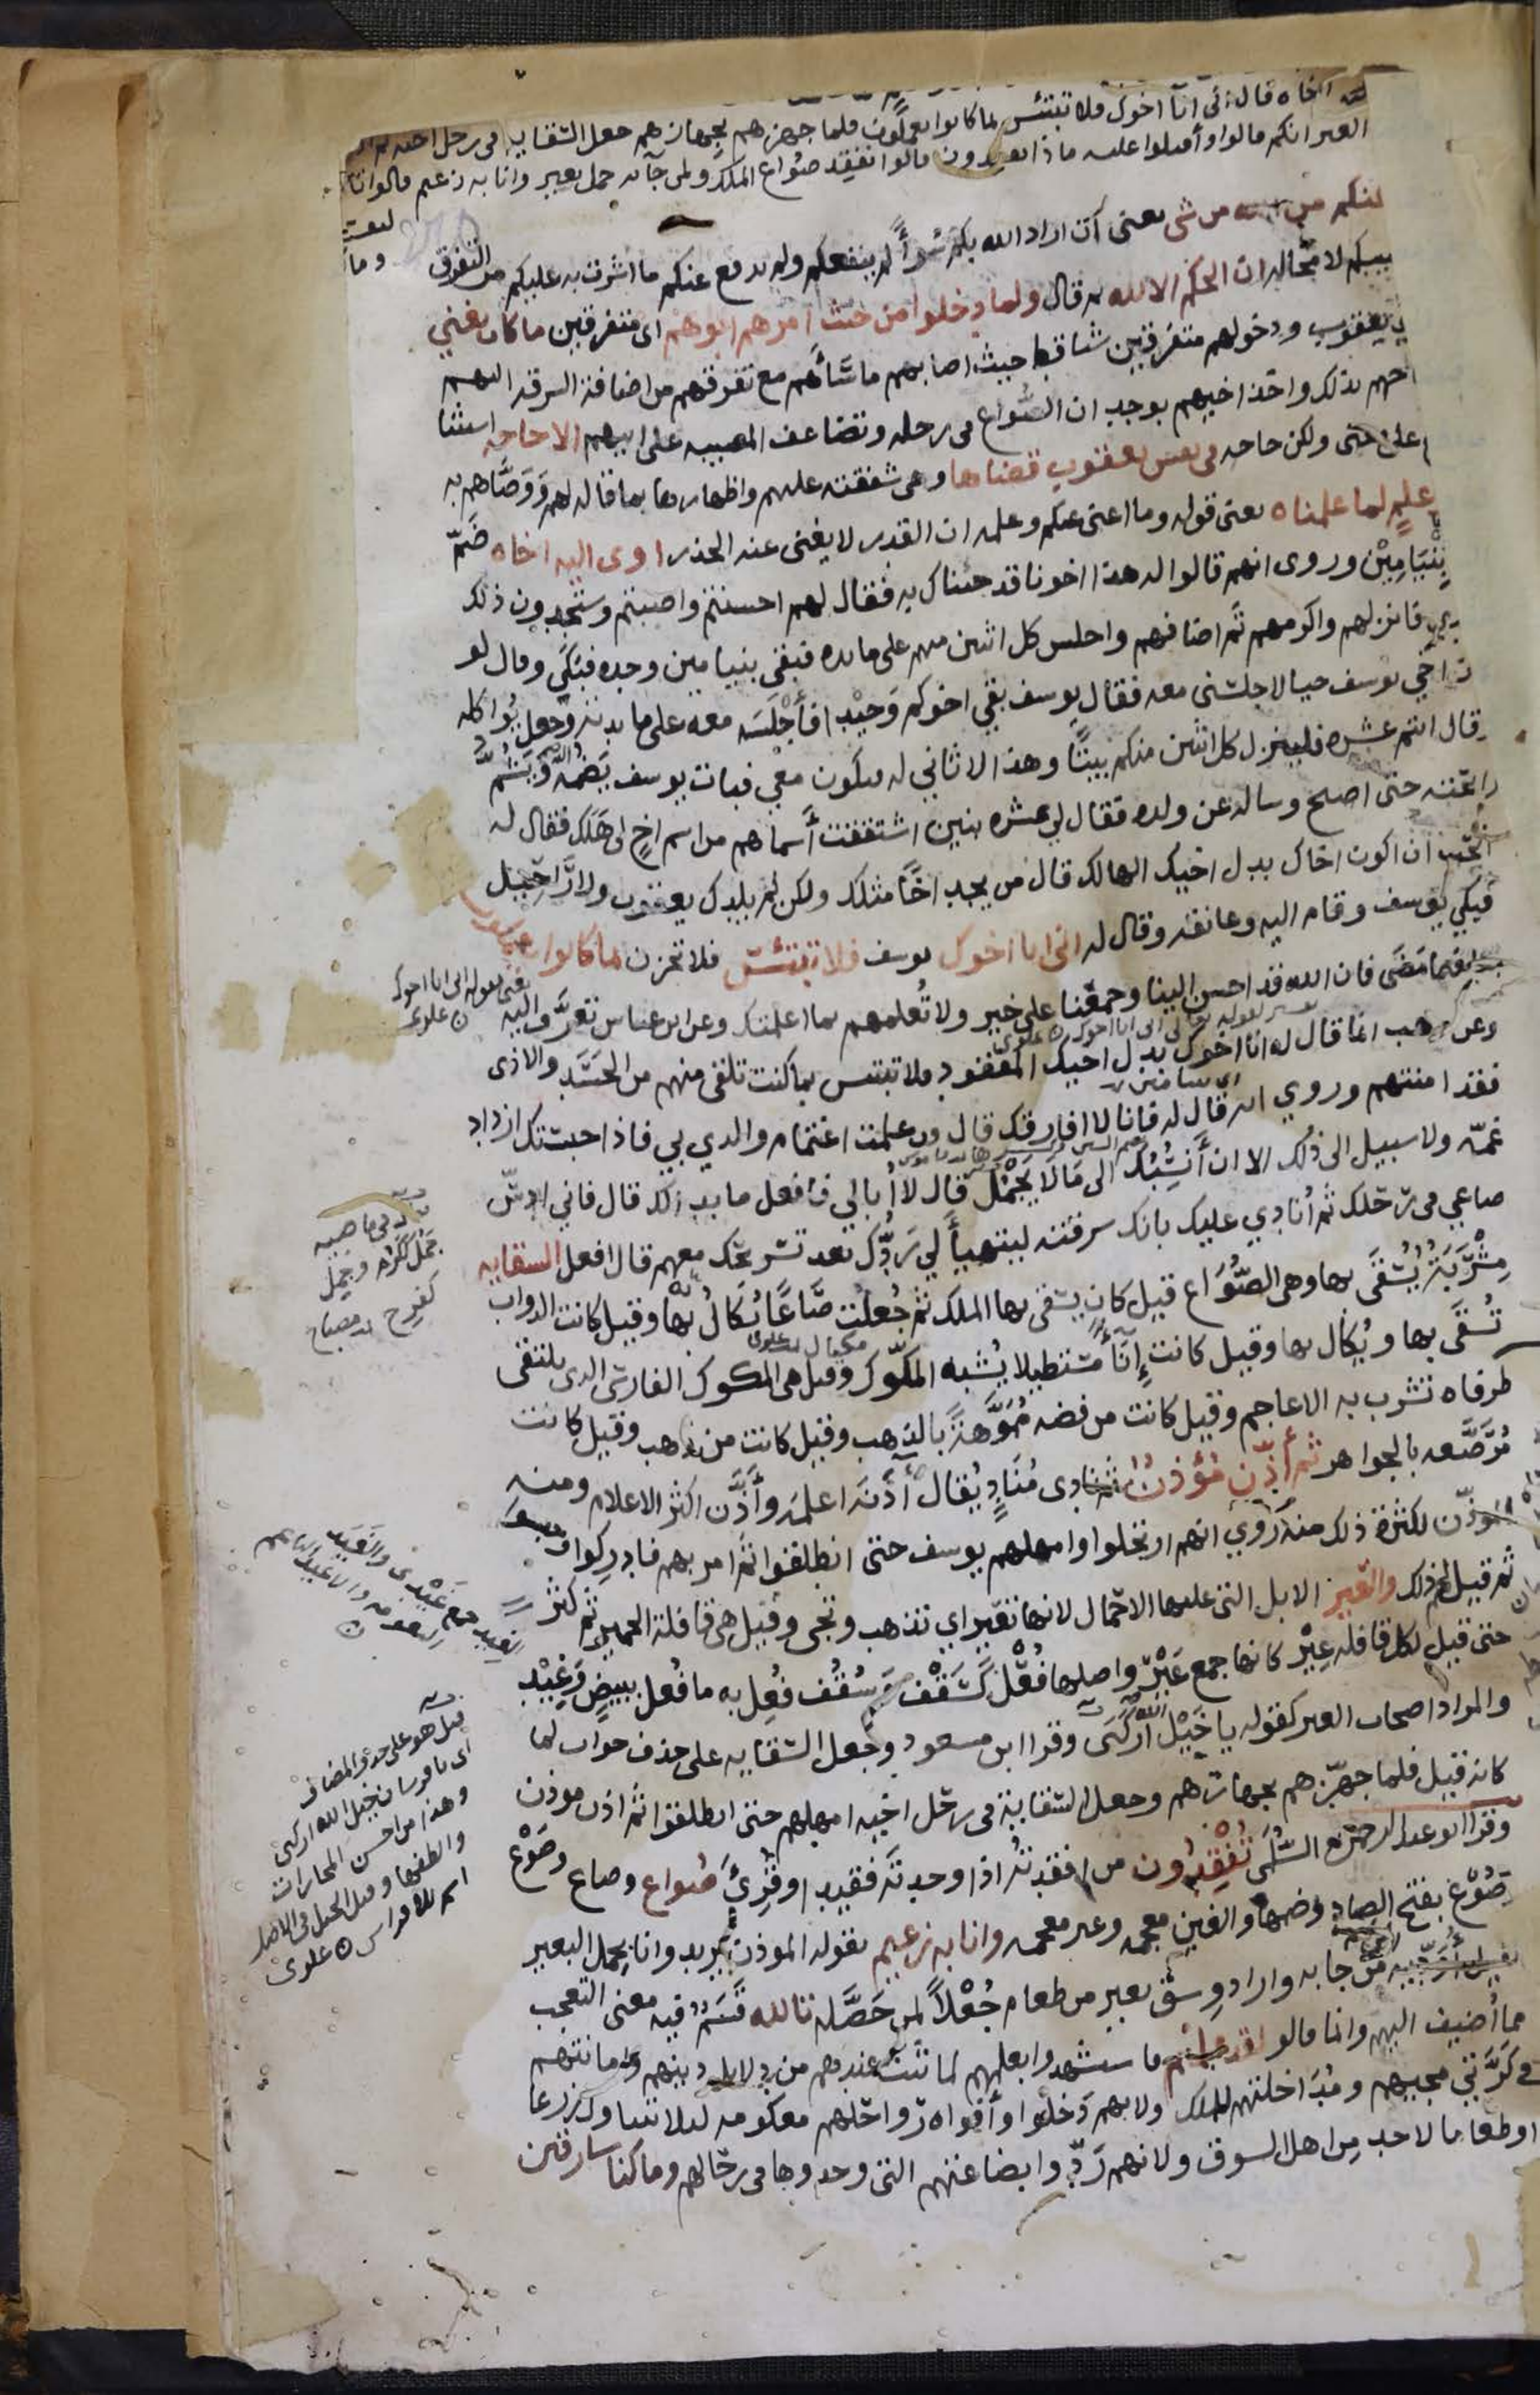 اخاه قال انى انا اخوك فلا تبتئس بما كانوا يعملون فلما جهزهم بجهازهم جعل السقايه فى رحل اخيه ثم
العير انكم قالوا وأقبلوا عليهم ماذا تفقدون قالوا نفقد صواع الملك ولمن جآء به حمل بعير وانا به زعيم قالوا تا
عنكم من الله من شى يعنى ان اراد الله بكم سُوأً لم ينفعكم ولم يدفع عنكم ما اشرت به عليكم من التفرق وما
يبكم لا محاله ان الحكم الا لله ثم قال ولما دخلوا من حيث امرهم ابوهم اى متفرقين ما كان يغني
يعقوب ودخولهم متفرقين شيا قط حيث اصابهم ما ساءهم مع تفرقهم من اضافة السرقه اليهم
بذلك واخذ اخيهم بوجد ان الصواع فى رحله وتضاعف المصيبه على ابيهم الا حاجه استثنا
على معنى ولكن حاجه فى نفس يعقوب قضاها وهى شفقته عليهم واظهارها بما قاله لهم ووصّاهم به
علم لما علمناه يعنى قوله وما اغنى عنكم وعلمه ان القدر لا يغنى عنه الحذر اوى اليه اخاه ضمّ
بنيامين وروى انهم قالوا له هذا اخونا قد جئناك به فقال لهم احسنتم واصبتم وستجدون ذلك
فانزلهم واكرمهم ثم اضافهم واجلس كل اثنين منهم على مائده فبقى بنيامين وحده فبكى وقال لو
اخي يوسف حيا لاجلسنى معه فقال يوسف بقي اخوكم وحيدا فأجلسه معه على مائدته وجعل يُواكله
وقال انتم عشره فلينزل كل اثنين منكم بيتًا وهذا لا ثاني له فيكون معي فبات يوسف يضمه اليه ويشمّ
رائحته حتى اصبح وساله عن ولده فقال لي عشره بنين اشتققت أسماهم من اسم اخٍ لى هلك فقال له
اتحب ان اكون اخاك بدل اخيك الهالك قال من يجد اخًا مثلك ولكن لم يلدك يعقوب ولا رَاحيل
فبكي يوسف وقام اليه وعانقه وقال له انى انا اخوك يوسف فلا تبتئس فلا تحزن بما كانوا يعملون
بنا فيما مضى فان الله قد احسن الينا وجمعنا على خير ولا تُعلمهم بما اعلمتك وعن ابن عباس تعرّف اليه
وعن وهب انما قال له انا اخوك بدل اخيك المفقود فلا تبتئس بما كنت تلقى منهم من الحَسَد والاذى
فقد امنتهم وروي انه قال له فانا لا افارقك قال قد علمت اغتمام والدي بي فاذا حبستك ازداد
غمّه ولا سبيل الى ذلك الا ان أنسُبك الى مَا لا يَجْمُل قال لا أبالي فافعل ما بدا لك قال فاني ادسّ
صاعي فى رحلك ثم أنادي عليك بانك سرقته ليتهيأ لي رَدُّك بعد تسريحك معهم قال افعل السقايه
مِشْرَبَة يُسْقَى بها وهى الصُّوَاع قيل كان يسقى بها الملك ثم جُعلت صَاعًا يُكَالُ به وقيل كانت الدواب
تُسْقَى بها ويُكال بها وقيل كانت إنَآءً مُستطيلا يُشبه المكّوك وقيل هى المكوك الفارسى الذى يلتقى
طرفاه تشرب به الاعاجم وقيل كانت من فضه مُمَوَّهةً بالذهب وقيل كانت من ذهب وقيل كانت
مُرَصَّعه بالجواهر ثم أذّن مُؤذنٌ ثم نادى مُنَادٍ يُقال آذَنَه اعلمه وأَذَّن اكثر الاعلام ومنه
المؤذّن لكثرة ذلك منه رُوي انهم ارتحلوا وامهلهم يوسف حتى انطلقوا ثم امر بهم فادركوا وحبسوا
ثم قيل لهم ذلك والعير الابل التى عليها الاحمال لانها تعير اي تذهب وتجى وقيل هى قافلة الحمير ثم كثر
حتى قيل لكل قافله عِيْر كانها جمع عَيْرٍ واصلها فُعْل كَسَقْف وسُقُف فُعِل به ما فُعل ببيضٍ وَغِيْدٍ
والمراد اصحاب العير كقوله يا خَيْل الله اركبى وقرا ابن مسعود وجعل السقايه على حذف جواب لما
كانه قيل فلما جهّزهم بجهازهم وجعل السقاية فى رحل اخيه امهلهم حتى انطلقوا ثم اذن موذن
وقرا ابو عبد الرحمن السُّلَمى تُفْقِدُون من افقدتُه اذا وجدته فقيدا وقُرِئَ صُواع وصاع وصَوْع
وصُوْع بفتح الصاد وضمها والغين معجمه وعير معجمه وانا به زعيم يقوله الموذن يريد وانا بحمل البعير
كفيل أُؤَدّيه الى من جا به واراد وِسْق بعير من طعام جُعْلاً لمن حَصَّله تالله قَسَمٌ فيه معنى التعجب
مما أُضيف اليهم وانما قالوا لقد علمتم فاستشهدوا بعلمهم لما ثبت عندهم من دلايل دينهم وامانتهم
فى كَرَّتَي مجيهم ومُدَاخلتهم للملك ولانهم دَخَلوا وأفواه رواحلهم معكومه لئلا تتناول زرعا
او طعاما لاحد من اهل السوق ولانهم رَدّوا بضاعتهم التى وجدوها فى رحالهم وما كنا سارقين
يعنى بقوله انى انا اخوك
علوى
جَمُل ككرُم وجَمِل
كفرح مصباح
الغيد جمع
قيل هو على حذف المضاف
اى يا فرسان خيل الله اركبى
وهذا من احسن المجازات
والطفها وقيل الخيل فى الاصل
اسم للافراس علوى